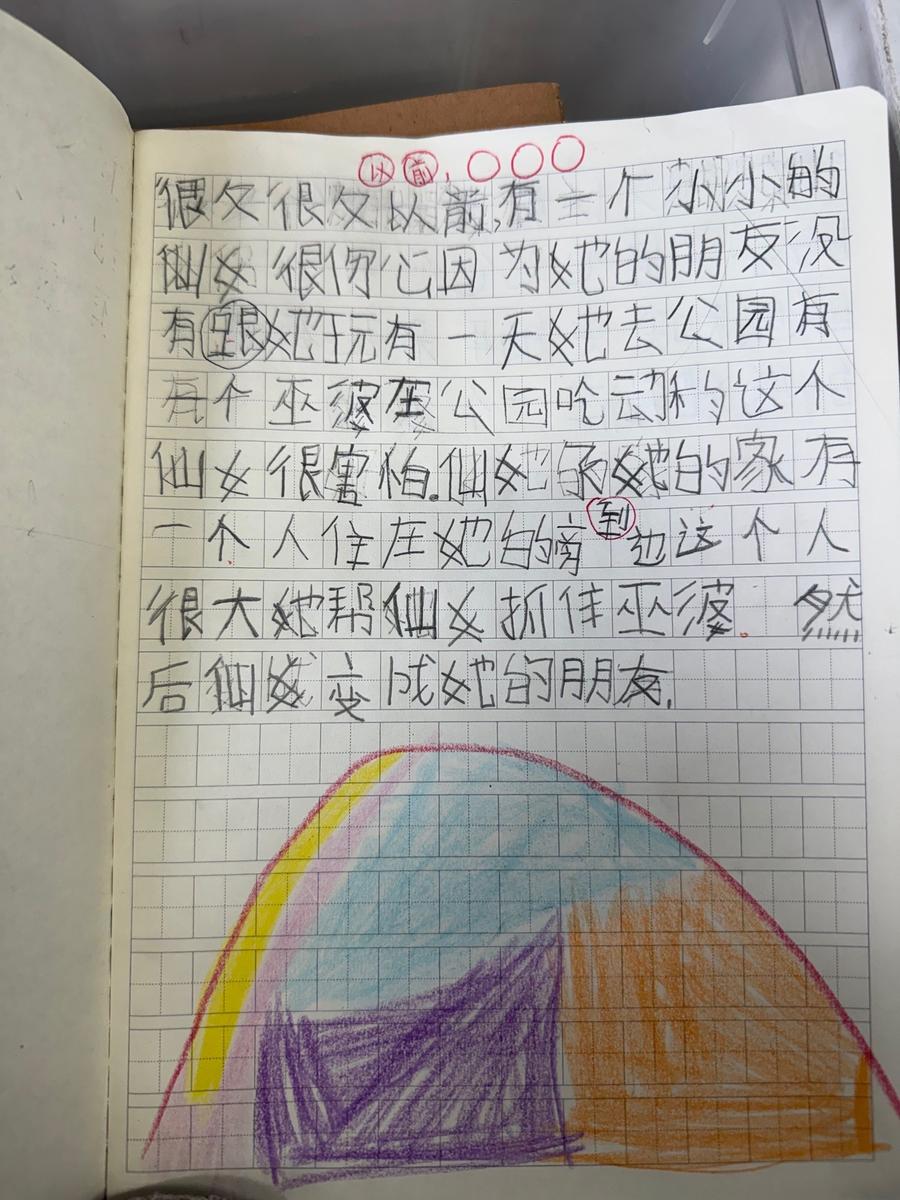 以前,○○○
很久很久以前,有一个小小的
仙女很伤心因为她的朋友没
有跟她玩有一天她去公园有
有个巫婆在公园吃动物这个
仙女很害怕.仙她到她的家有
一个人住在她的旁边这个人
很大她帮仙女抓住巫婆. 然
后仙女变成她的朋友.